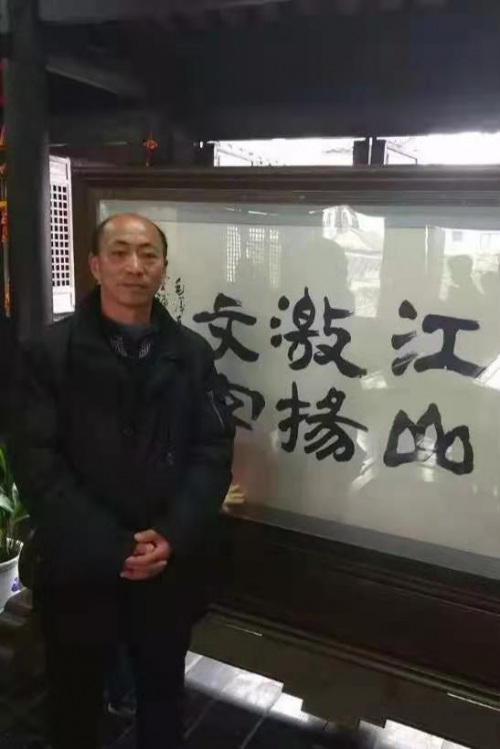 江山
激揚
文字